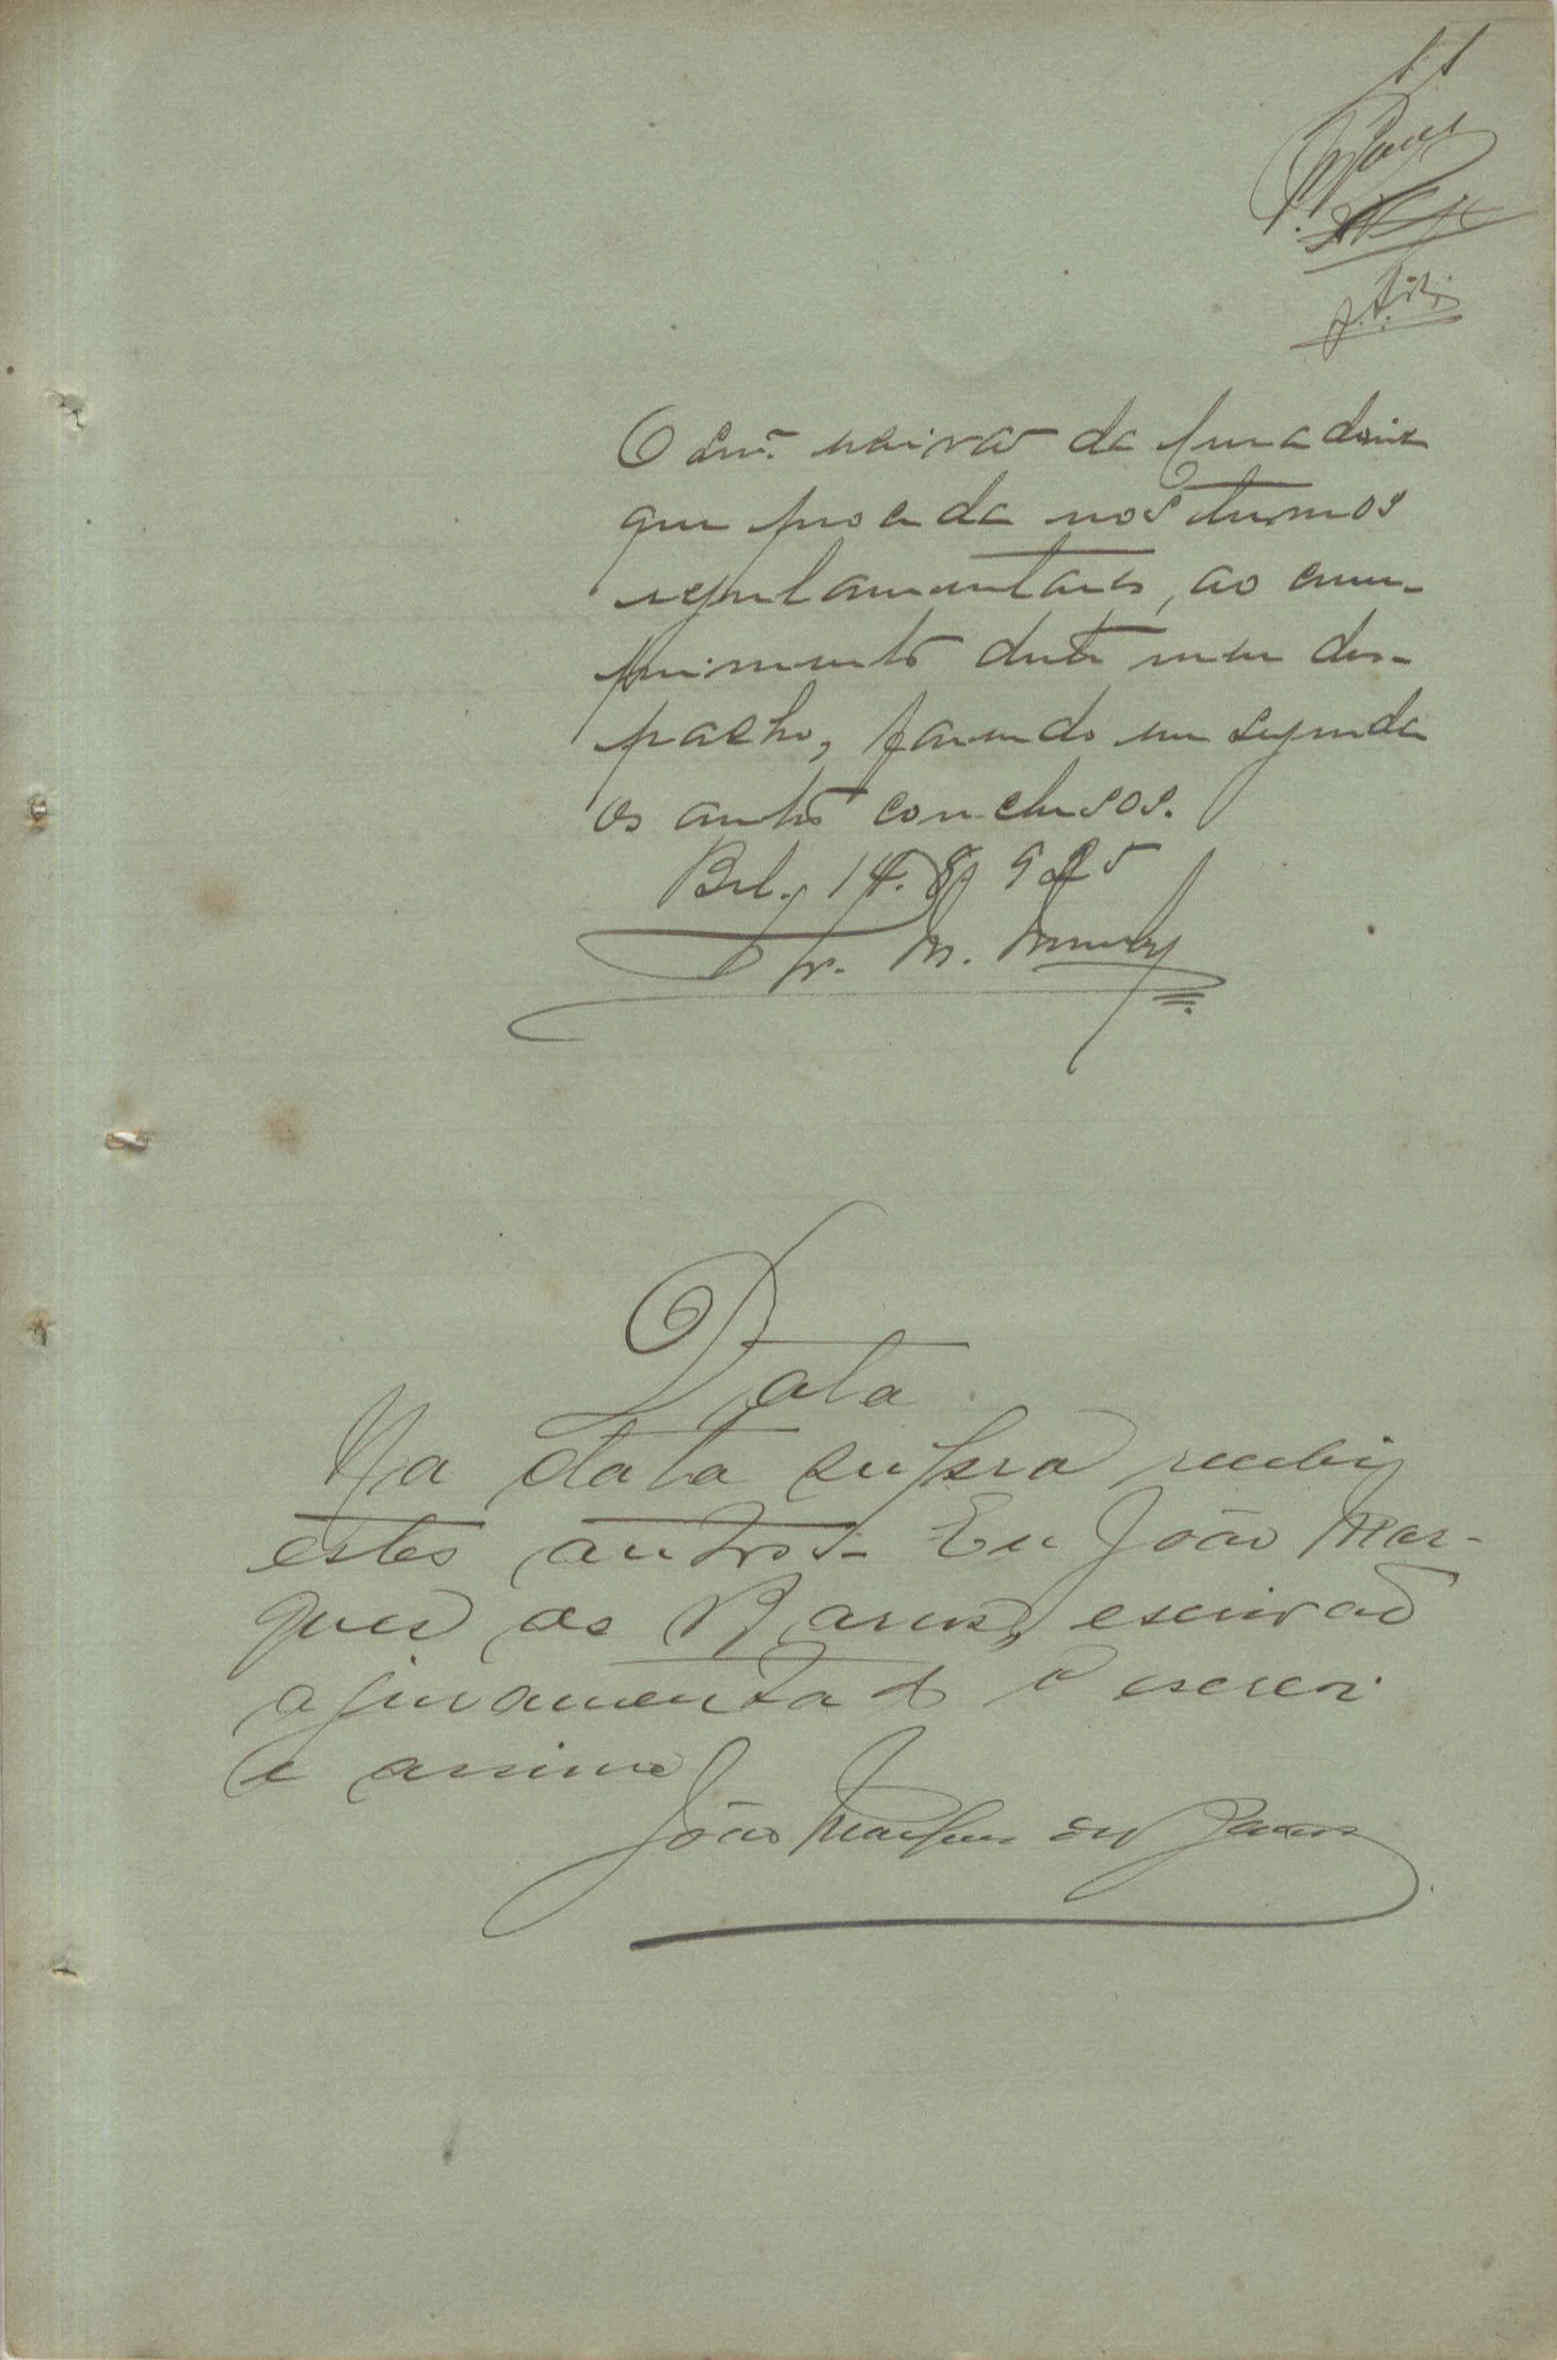 11
O Snr. escrivão
que proceda nos termos
regulamentares, ao cum-
primento deste meu des-
pacho, fazendo em seguida
os autos conclusos.
Bel. 925
Data
Na data supra recebi
estes autos. Eu João Mar-
ques de Barros, escrivão
ajuramentado o escrevi
e assino
João Marques de Barros